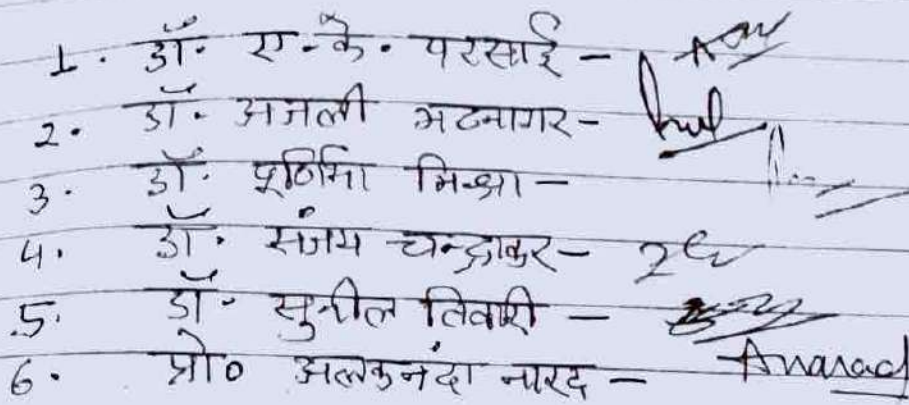 1. डॉ. ए. के. परसाई -
2. डॉ. अजली भटनागर -
3. डॉ. पूर्णिमा मिश्रा -
4. डॉ. संजय चन्द्राकुर -
5. डॉ. सुनील तिवारी -
6. प्रो० अलकनंदा नारद - Anarad